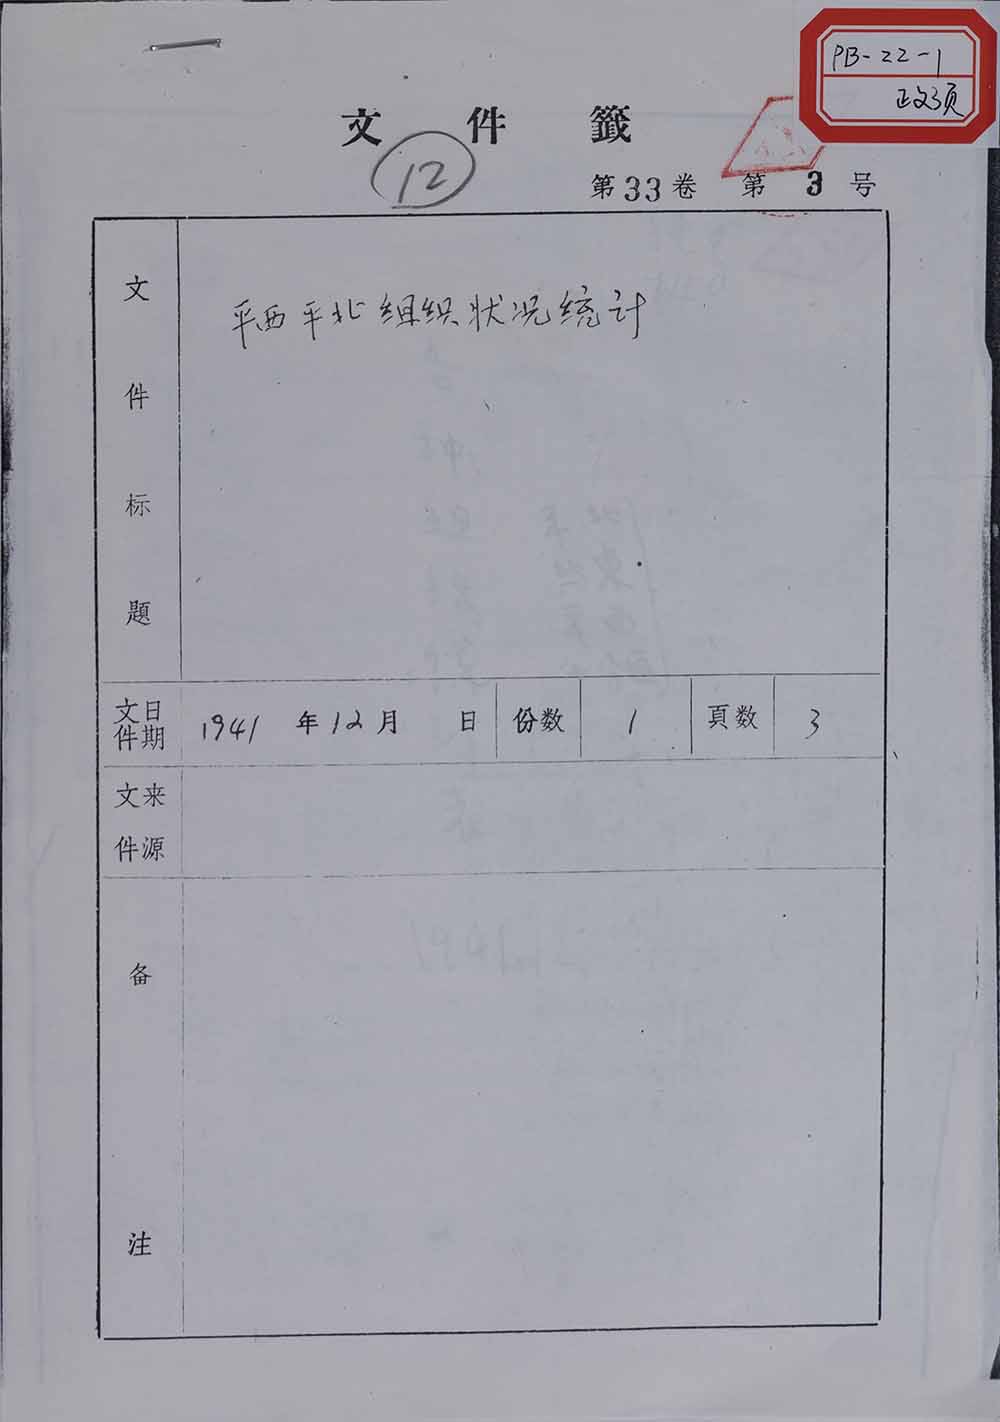 PB-22-1
正文3页
文件籤
12
第33卷 第3号
文件标题
平西平北组织状况统计
文件日期
1941年12月 日
份数
1
頁数
3
文件来源
备注